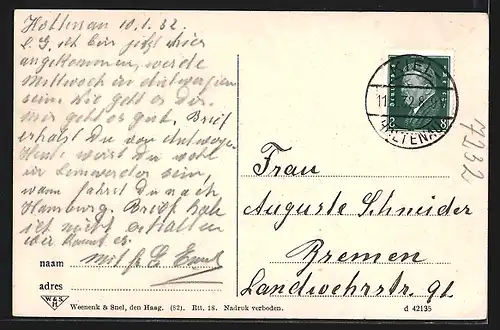 Holtenau 10.1.32.
L. G. ich bin jetzt hier
angekommen, werde
Mittwoch in Antwerpen
sein. Wie geht es Dir.
mir geht es gut. Brief
erhälst Du von Antwerpen
Heute wirst Du wohl
in Lemwerder sein,
wann fährst Du nach
Hamburg. Brief hab
ich nicht erhalten
wie kommt es.
mit fr. G. Emil
naam
adres
KIEL
11.
32.
HOLTENAU
8 8
Frau
Auguste Schneider
Bremen
Landwehrstr. 91
7232
W&S
H
Weenenk & Snel, den Haag. (82). Rtt. 18. Nadruk verboden.
d 42135